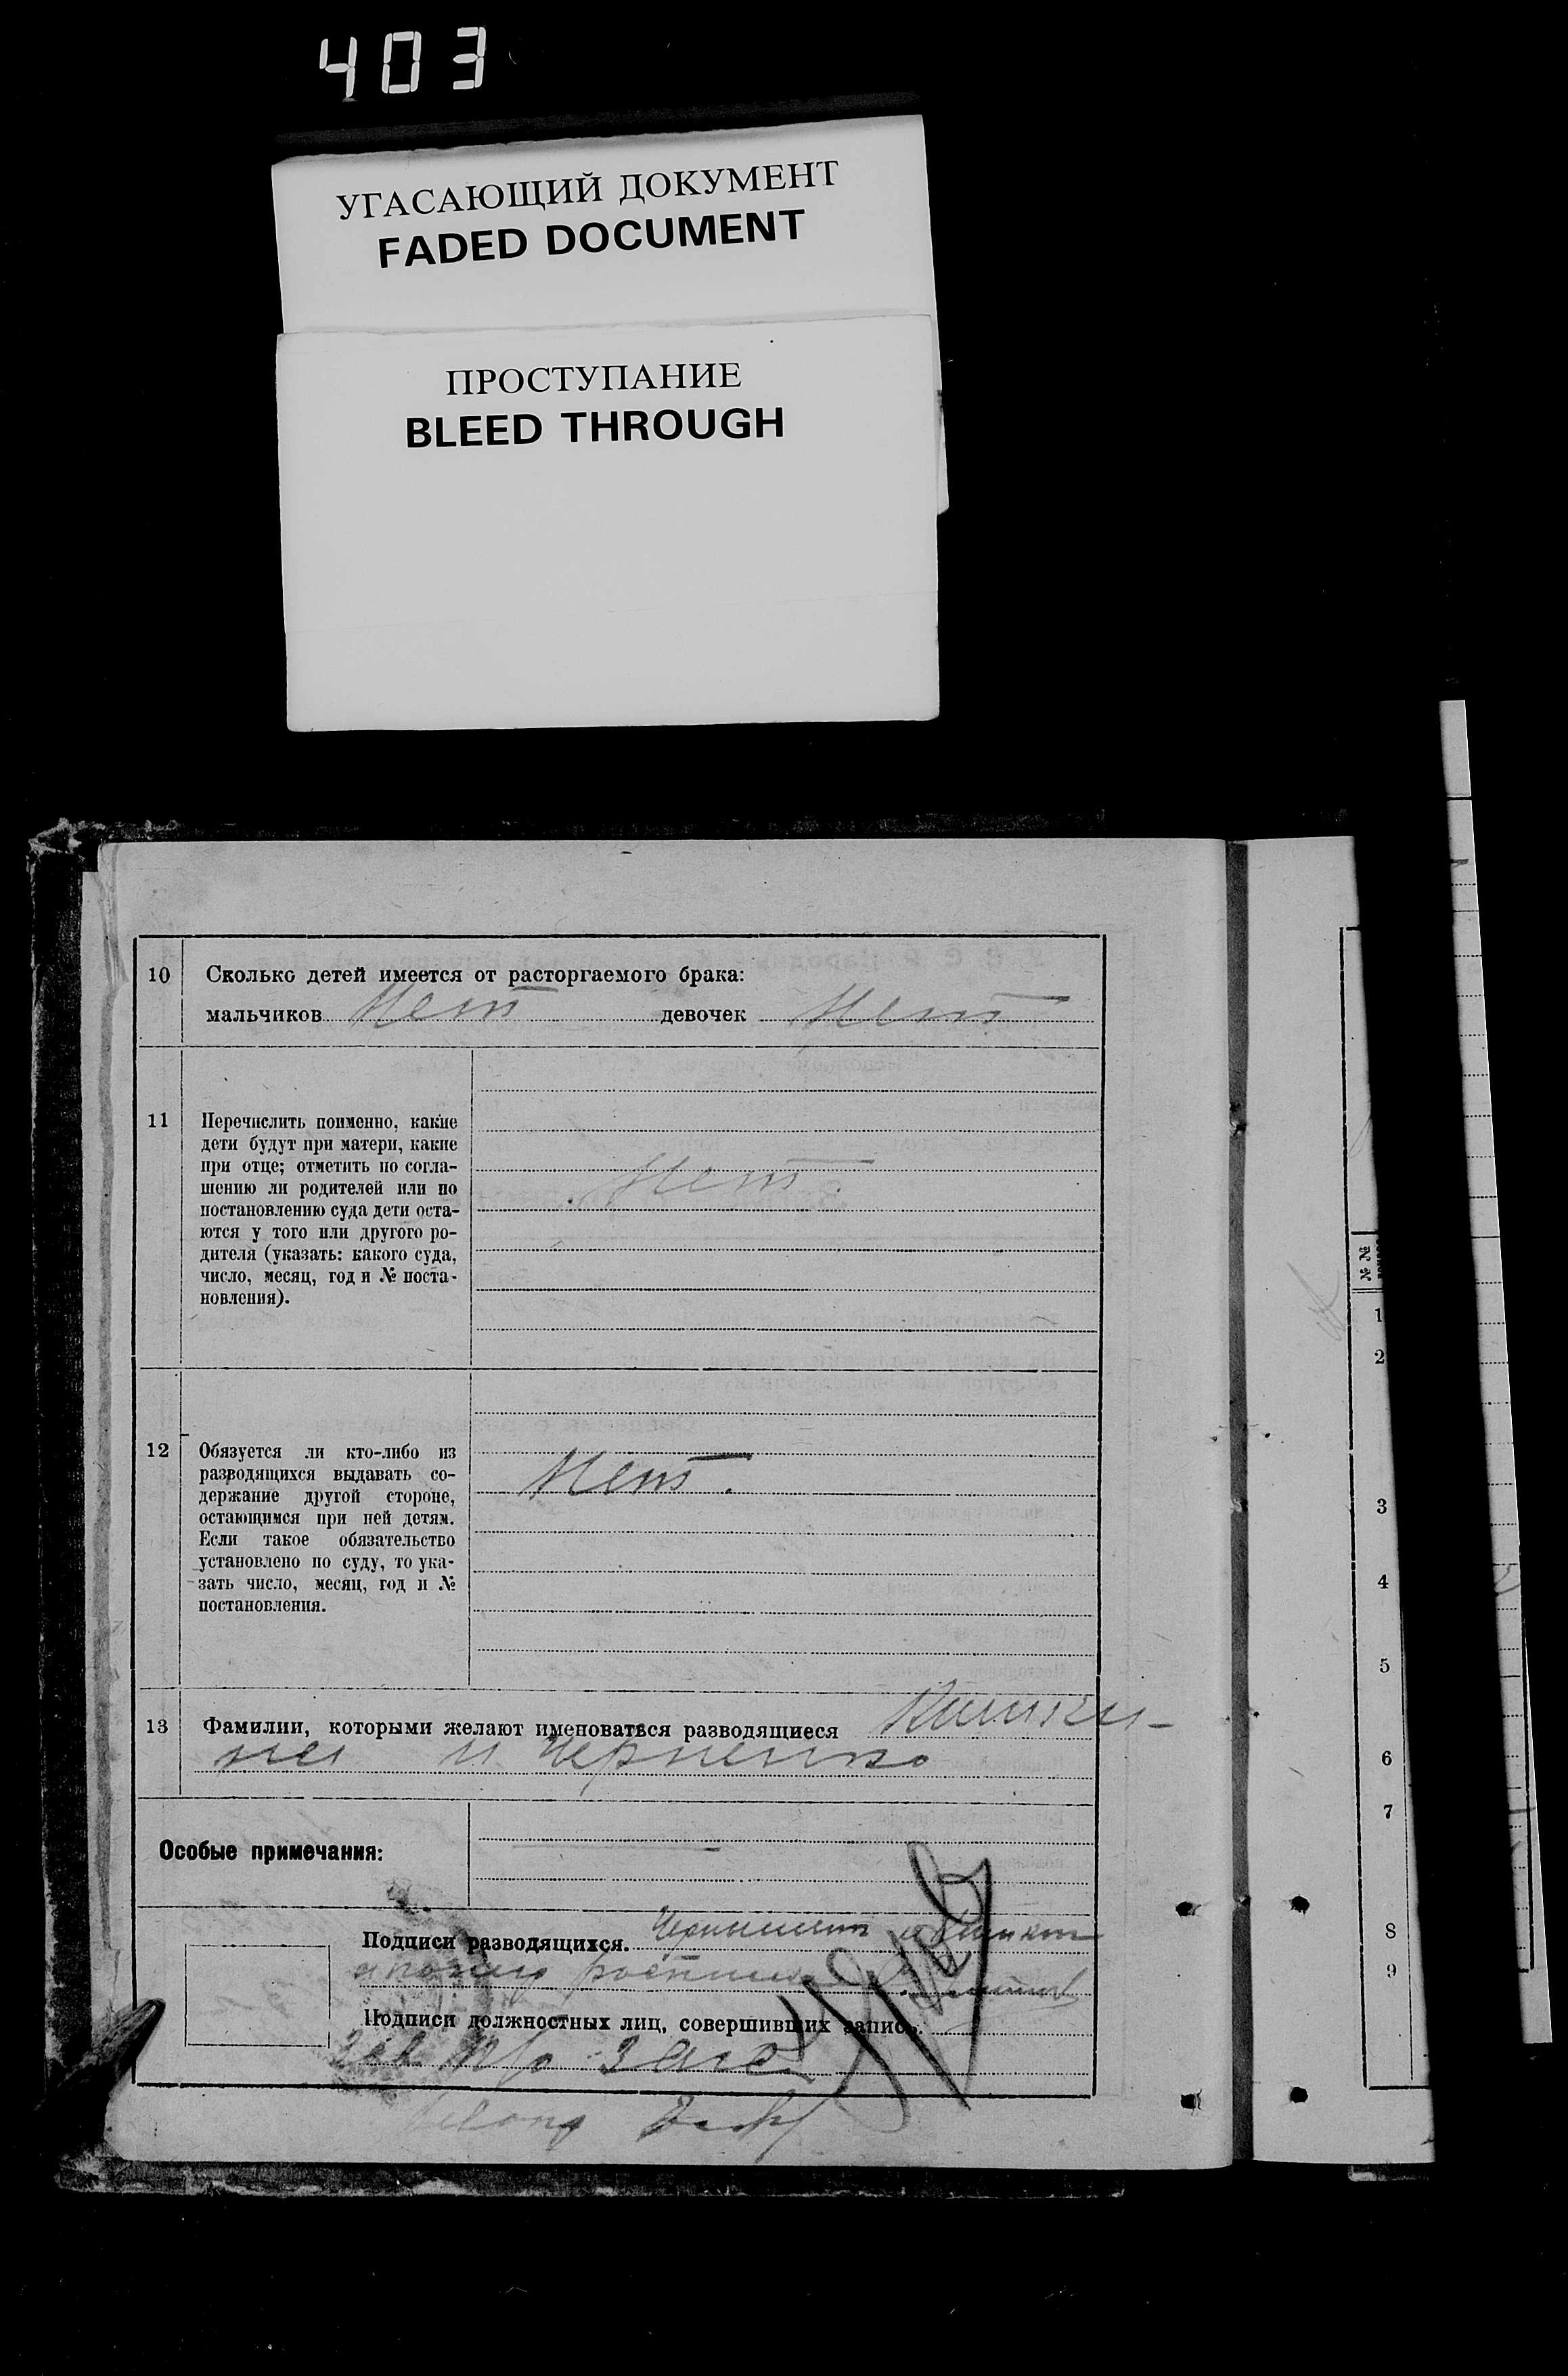 403
УГАСАЮЩИЙ ДОКУМЕНТ
FADED DOCUMENT
ПРОСТУПАНИЕ
BLEED THROUGH
10 Сколько детей имеется от расторгаемого брака:
мальчиков Нет девочек Нет
11 Перечислить поименно, какие
дети будут при матери, какие
при отце; отметить по согла-
шению ли родителей или по
постановлению суда дети оста-
ются у того или другого ро-
дителя (указать: какого суда,
число, месяц, год и № поста-
новления).
Нет.
12 Обязуется ли кто-либо из
разводящихся выдавать со-
держание другой стороне,
остающимся при ней детям.
Если такое обязательство
установлено по суду, то ука-
зать число, месяц, год и №
постановления.
Нет.
13 Фамилии, которыми желают именоваться разводящиеся Кишки-
на и Черненко
Особые примечания:
Подписи разводящихся.
Подписи должностных лиц, совершивших запись:
Зав
№№
1
2
3
4
5
6
7
8
9